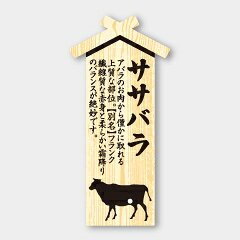 ササバラ
アバラのお肉から僅かに取れる
上質な部位。【別名】フランク
繊維質な赤身と柔らかい霜降り
のバランスが絶妙です。